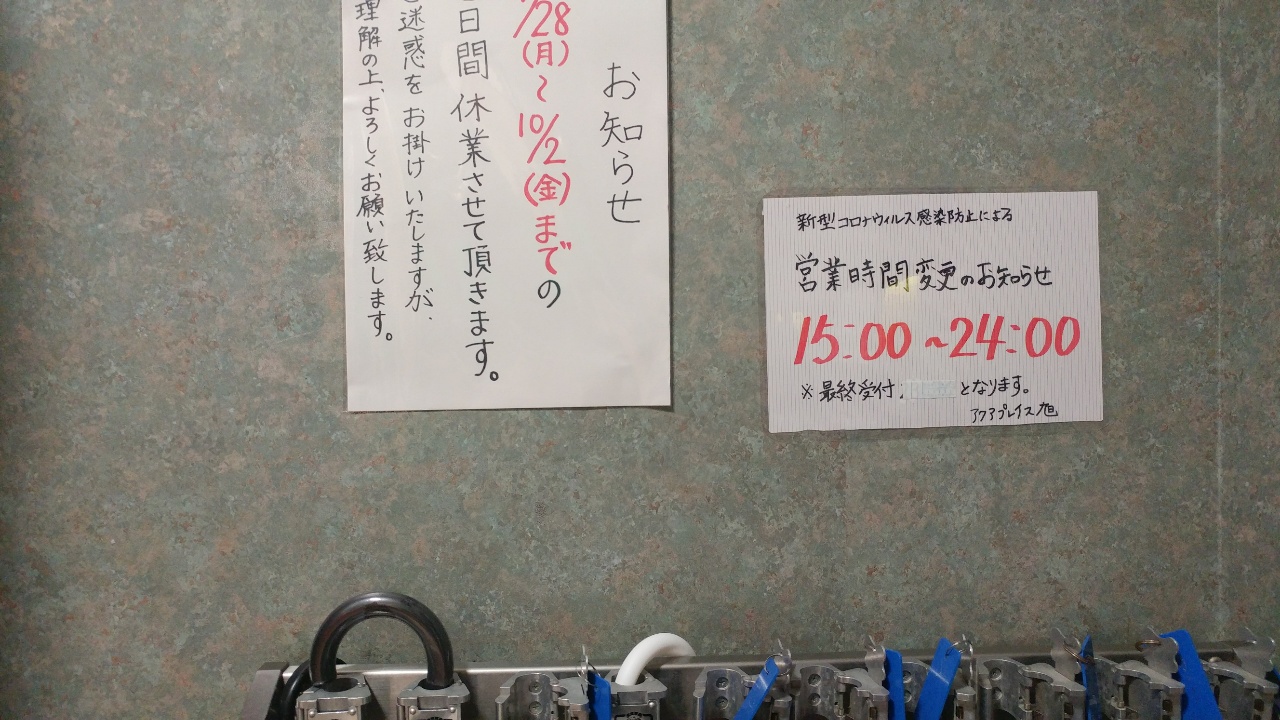 お知らせ
/28(月)~10/2(金)までの
日間休業させて頂きます。
迷惑をお掛けいたしますが、
理解の上、よろしくお願い致します。
新型コロナウィルス感染防止による
営業時間変更のお知らせ
15:00~24:00
※最終受付 となります。
アクアプレイス旭